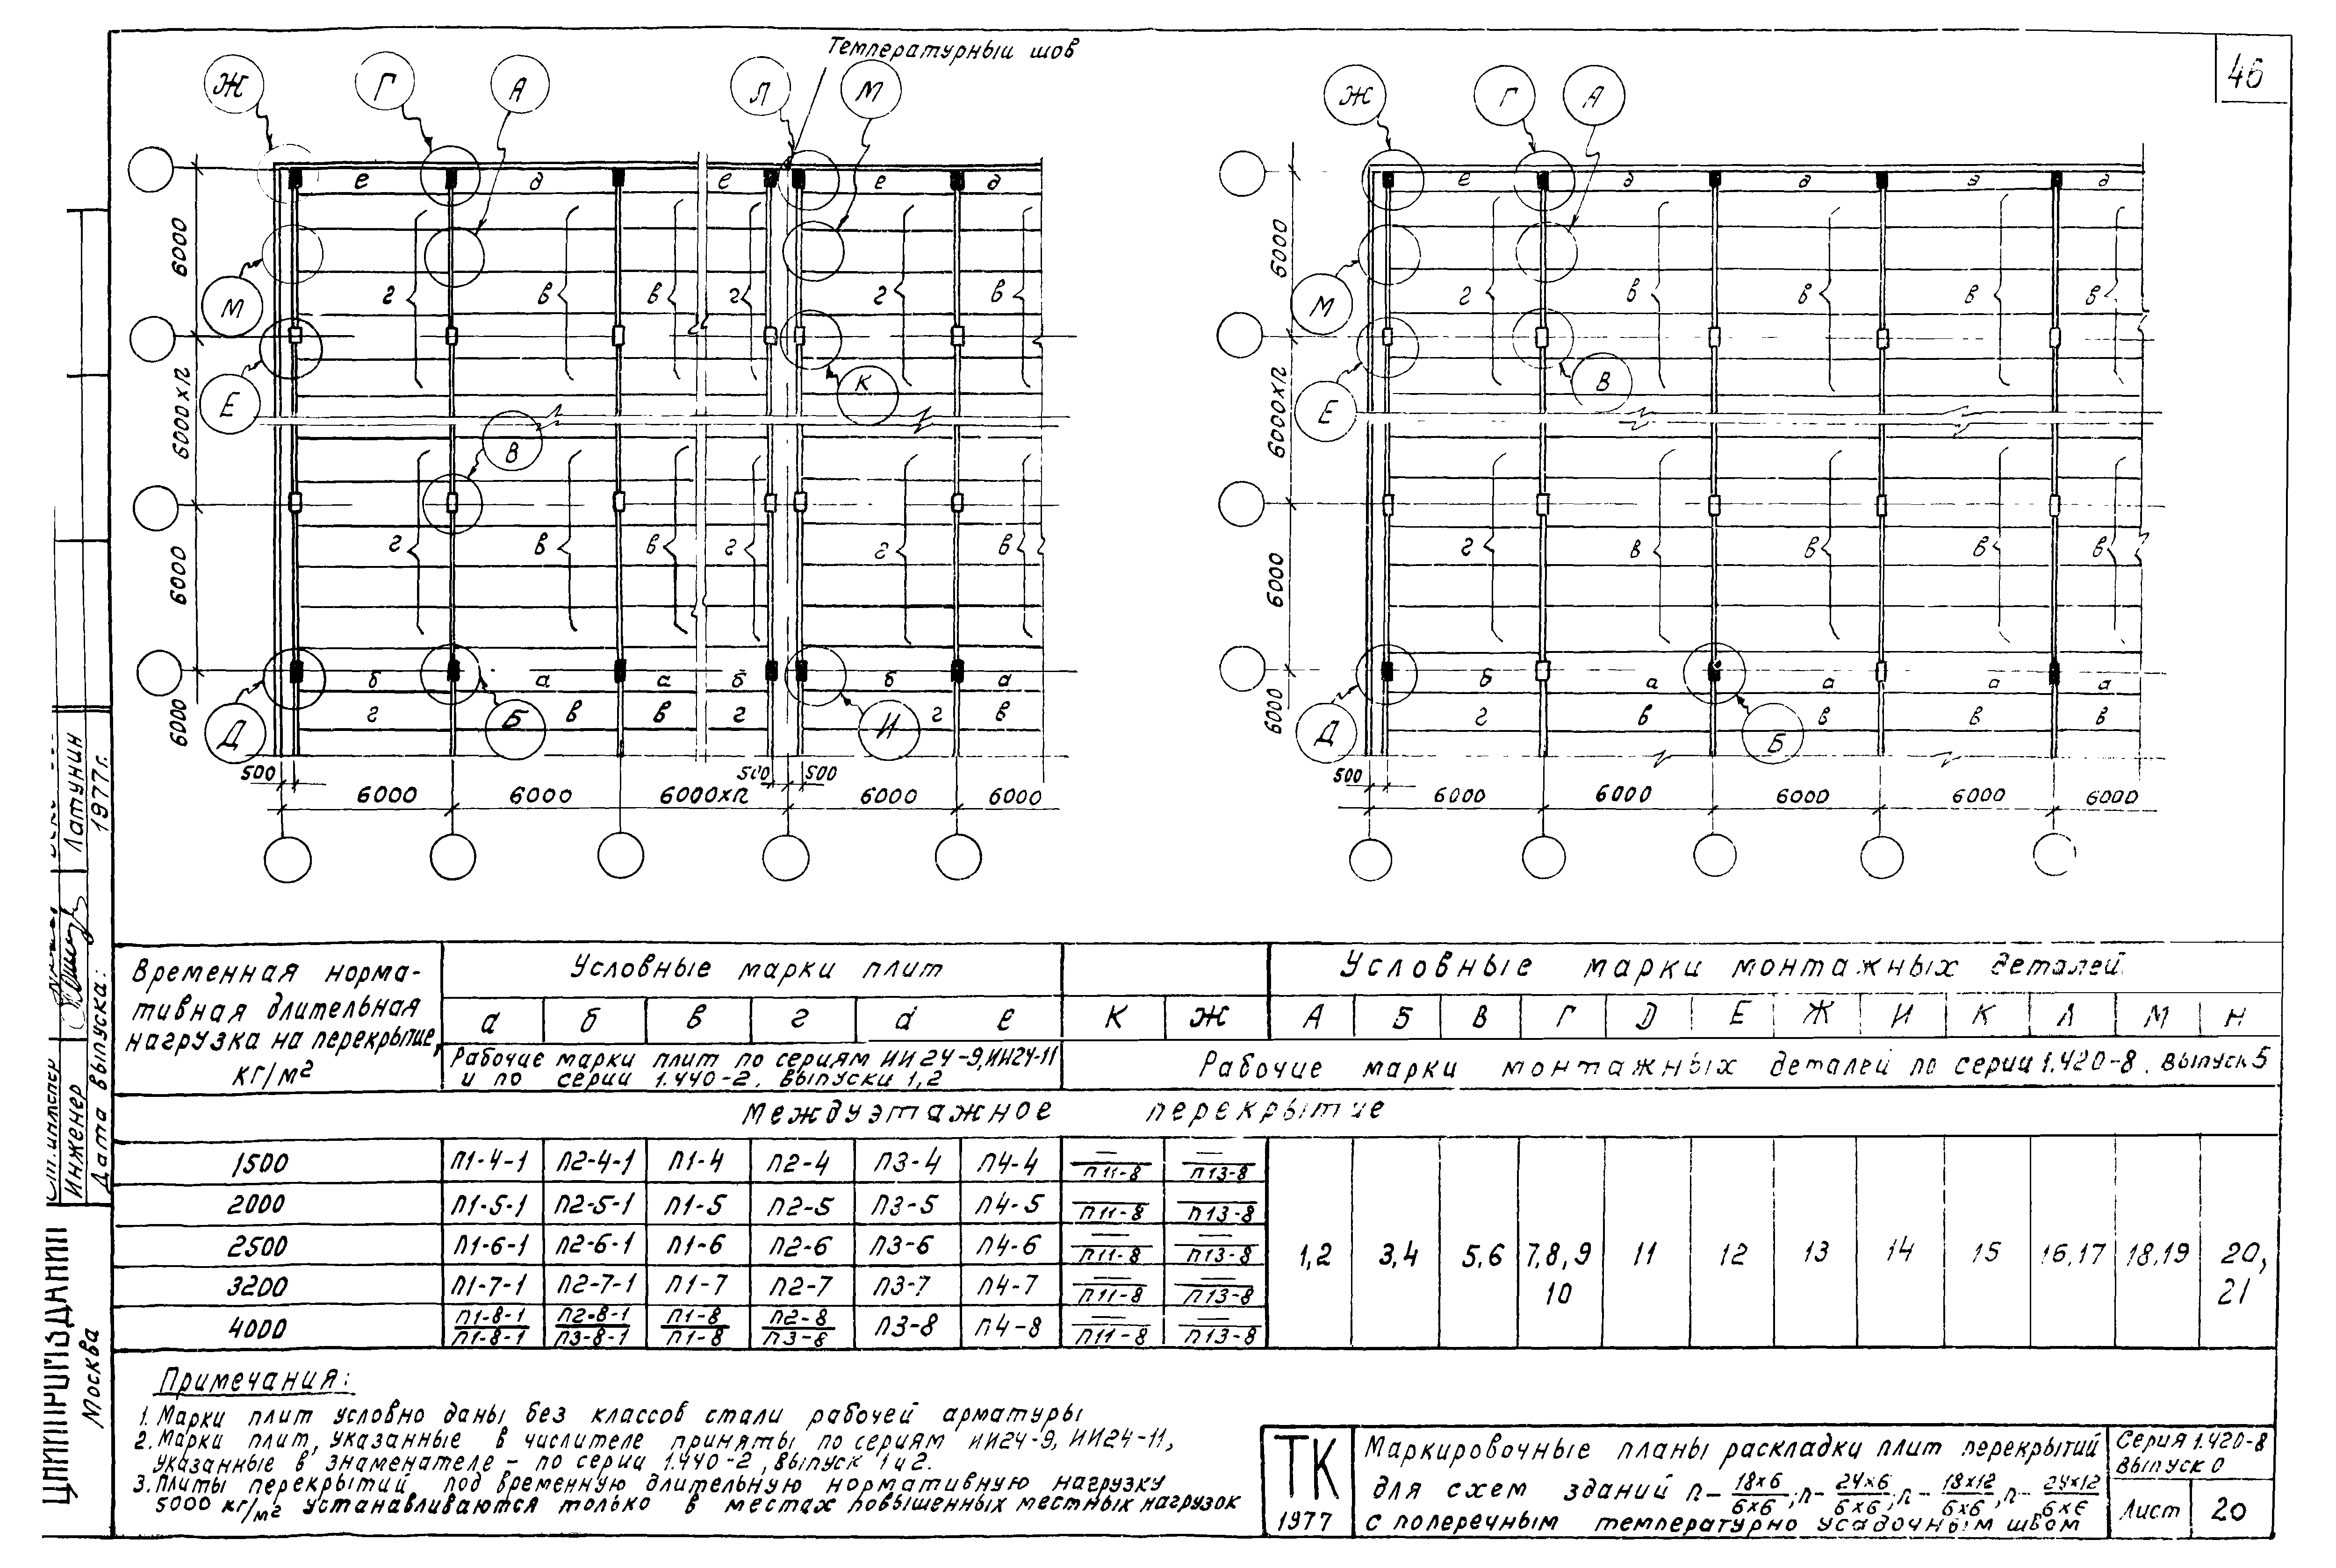 46
Температурный шов
Ж Г А Л М
Ж Г А
е д е е д
е д д д д
6000
6000
М
М
г в в г г в
г в в в в
Е
К
Е
В
6000хn
6000хn
В
г в в г г в
г в в в в
6000
6000
б а а б б а
б а а а а
г в в г г в
г в в в в
6000
6000
Д Б И
Д Б
500 500 500
500
6000 6000 6000хn 6000 6000
6000 6000 6000 6000 6000
Временная норма-
тивная длительная
нагрузка на перекрытие,
кг/м²
Условные марки плит
Условные марки монтажных деталей
а б в г d е К Ж А Б В Г D Е Ж И К Л М Н
Рабочие марки плит по сериям ИИ24-9, ИИ24-11
и по серии 1.440-2. выпуски 1,2
Рабочие марки монтажных деталей по серии 1.420-8. выпуск 5
Междуэтажное перекрытие
1500 П1-4-1 П2-4-1 П1-4 П2-4 П3-4 П4-4 —/П11-8 —/П13-8
2000 П1-5-1 П2-5-1 П1-5 П2-5 П3-5 П4-5 —/П11-8 —/П13-8
2500 П1-6-1 П2-6-1 П1-6 П2-6 П3-6 П4-6 —/П11-8 —/П13-8
3200 П1-7-1 П2-7-1 П1-7 П2-7 П3-7 П4-7 —/П11-8 —/П13-8
4000 П1-8-1/П1-8-1 П2-8-1/П3-8-1 П1-8/П1-8 П2-8/П3-8 П3-8 П4-8 —/П11-8 —/П13-8
1,2 3,4 5,6 7,8,9 10 11 12 13 14 15 16,17 18,19 20, 21
Примечания:
1. Марки плит условно даны без классов стали рабочей арматуры
2. Марки плит, указанные в числителе приняты по сериям ИИ24-9, ИИ24-11,
указанные в знаменателе - по серии 1.440-2, выпуск 1 и 2.
3. Плиты перекрытий под временную длительную нормативную нагрузку
5000 кг/м² устанавливаются только в местах повышенных местных нагрузок
ТК
1977
Маркировочные планы раскладки плит перекрытий
для схем зданий п-18х6/6х6; п-24х6/6х6; п-18х12/6х6; п-24х12/6х6
с поперечным температурно усадочным швом
Серия 1.420-8
выпуск 0
Лист 20
Инженер Латунин
Дата выпуска: 1977г.
Москва